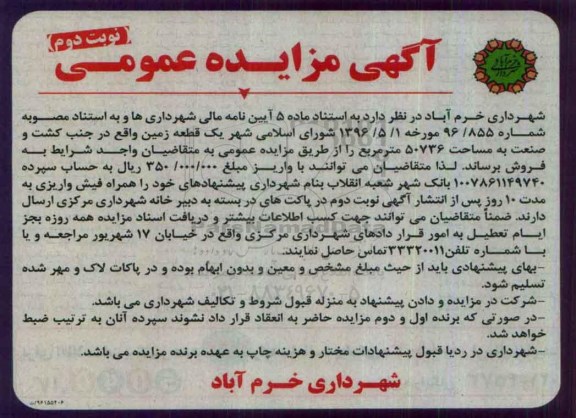 نوبت دوم
آگهی مزایده عمومی
شهرداری خرم آباد در نظر دارد به استناد ماده ۵ آیین نامه مالی شهرداری ها و به استناد مصوبه
شماره ۹۶/۸۵۵ مورخه ۱/ ۵/ ۱۳۹۶ شورای اسلامی شهر یک قطعه زمین واقع در جنب کشت و
صنعت به مساحت ۵۰۷۳۶ مترمربع را از طریق مزایده عمومی به متقاضیان واجد شرایط به
فروش برساند. لذا متقاضیان می توانند با واریز مبلغ ۳۵۰/۰۰۰/۰۰۰ ریال به حساب سپرده
۱۰۰۷۸۶۱۱۴۹۷۴۰ بانک شهر شعبه انقلاب بنام شهرداری پیشنهادهای خود را همراه فیش واریزی به
مدت ۱۰ روز پس از انتشار آگهی نوبت دوم در پاکت های در بسته به دبیر خانه شهرداری مرکزی ارسال
دارند. ضمناً متقاضیان می توانند جهت کسب اطلاعات بیشتر و دریافت اسناد مزایده همه روزه بجز
ایام تعطیل به امور قرار دادهای شهرداری مرکزی واقع در خیابان ۱۷ شهریور مراجعه و یا
با شماره تلفن ۳۳۳۲۰۰۱۱ تماس حاصل نمایند.
-بهای پیشنهادی باید از حیث مبلغ مشخص و معین و بدون ابهام بوده و در پاکات لاک و مهر شده
تسلیم شود.
-شرکت در مزایده و دادن پیشنهاد به منزله قبول شروط و تکالیف شهرداری می باشد.
-در صورتی که برنده اول و دوم مزایده حاضر به انعقاد قرار داد نشوند سپرده آنان به ترتیب ضبط
خواهد شد.
-شهرداری در ردیا قبول پیشنهادات مختار و هزینه چاپ به عهده برنده مزایده می باشد.
شهرداری خرم آباد